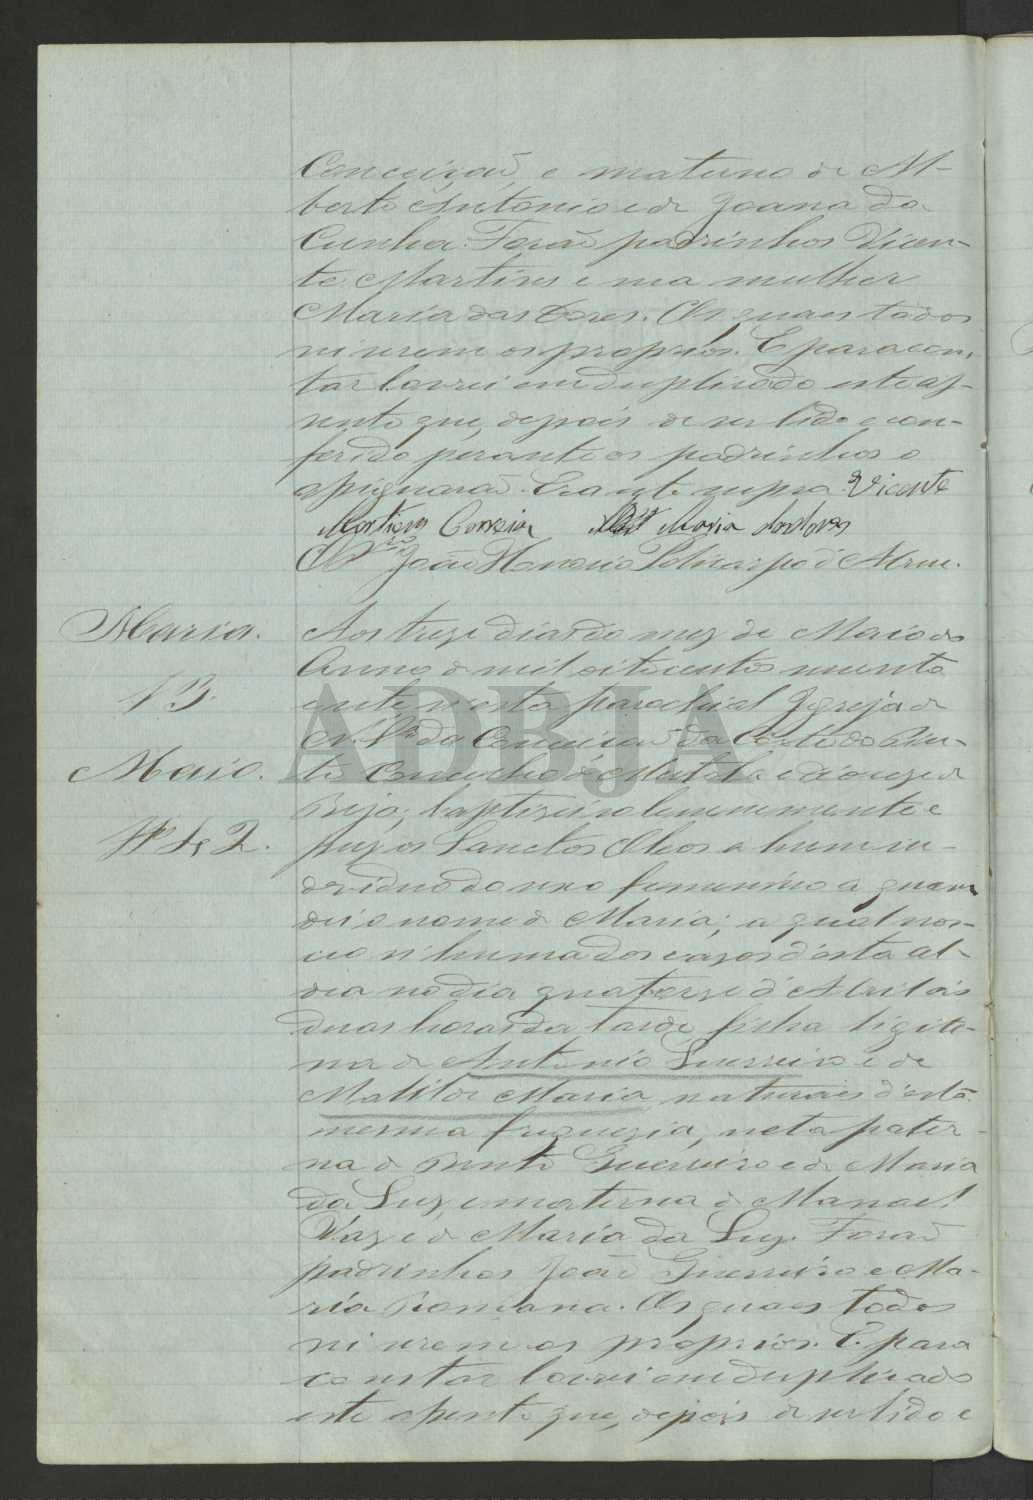 Conceiçaõ, e materno de Al-
berto Antonio e de Joana da
Cunha. Foraõ padrinhos Vicen-
te Martires e sua mulher
Maria das Dores. Os quaes todos
sei serem os proprios. E para cons-
tar lavrei em duplicado este as-
sento que, depois de ser lido e con-
ferido perante os padrinhos o
assignaraõ. Era ut supra. Vicente
Martires Correia Maria das Dores
João Honorio Policarpo d'
Maria.
13
Maio.
Nº 2.
Aos treze dias do mez de Maio do
Anno de mil oitocentos noventa
e sete n'esta parochial Igreja de
N. Srª da Conceiçaõ da Corte do Pin-
to Concelho de Mertola e diocese de
Beja; baptizei solemnemente e
puz os Sanctos Oleos a hum in-
dividuo do sexo feminino a quem
dei o nome de Maria; a qual nas-
ceo n'huma das cazas d'esta al-
dea no dia quatorze d'Abril ás
duas horas da tarde filha ligiti-
ma de Antonio Guerreiro e de
Matilde Maria naturaes d'esta
mesma freguezia, neta pater-
na de Bento Guerreiro e de Maria
da Luz e materna de Manoel
Vaz e de Maria da Luz. Foraõ
padrinhos Joaõ Guerreiro e Ma-
ria Romana. Os quaes todos
sei serem os proprios. E para
constar lavrei em duplicado
este assento que, depois de ser lido e
ADBJA